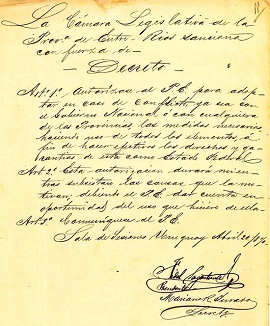 La Cámara Legislativa de la
Prova. de Entre-Rios sanciona
con fuerza de-
Decreto
Art.º 1º Autorizase al P.E. para adop-
tar en caso de Conflicto ya sea con
el Gobierno Nacional ó con cualquiera
de las Provincias, las medidas necesarias,
haciendo uso de todos los elementos á
fin de hacer efectivos los derechos y ga-
rantías de este como Estado Federal
Art. 2º Esta autorizacion durará mien-
tras subsistan las causas, que la mo-
tivan, debiendo el P.E. dar cuenta en
oportunidad del uso que hiciere de ella.
Art. 3º Comuníquese al P.E.
Sala de Sesiones Uruguay Abril 20/870
Fidel
Mariano
Secreto